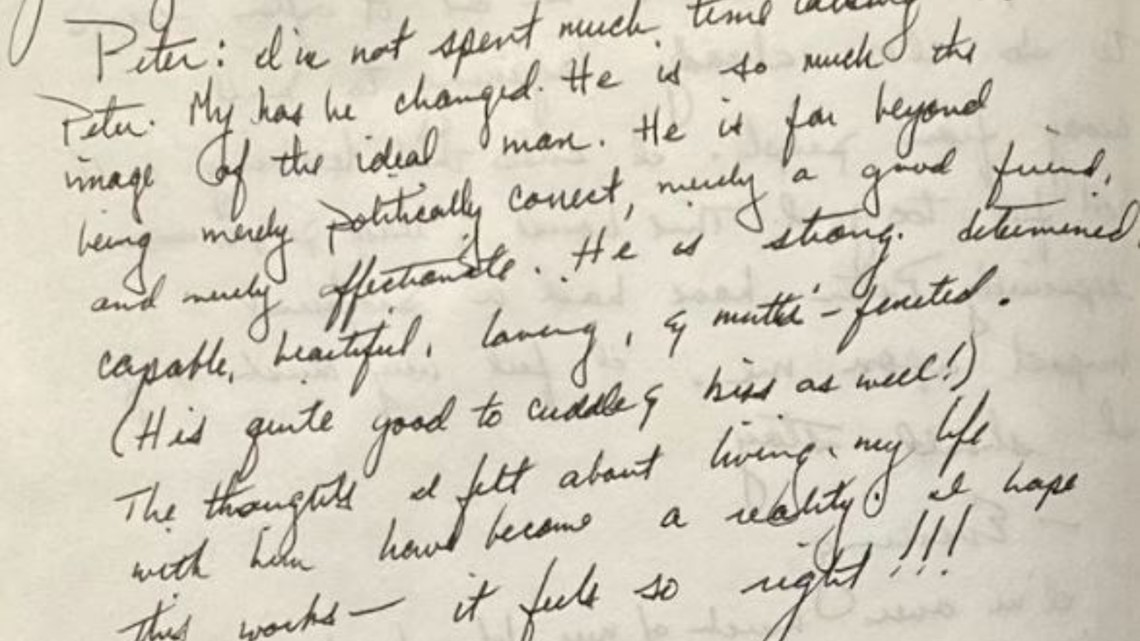 Peter: I've not spent much time
Peter. My has he changed. He is so much the
image of the ideal man. He is far beyond
being merely politically correct, merely a good friend,
and merely affectionate. He is strong, determined,
capable, beautiful, loving, &
(H is quite good to cuddle & kiss as well!)
The thoughts I felt about living my life
with him have become a reality. I hope
this works — it feels so right!!!